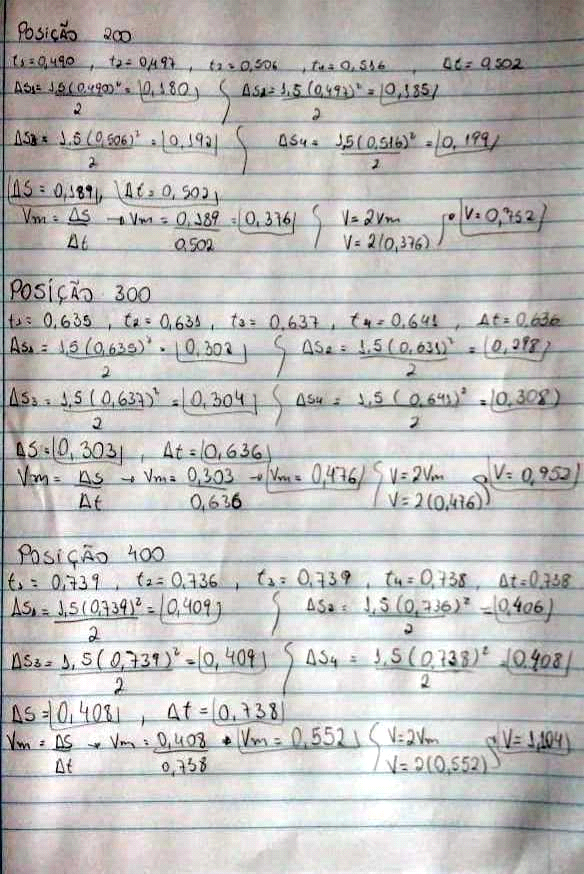 POSIÇÃO 200
t1 = 0,490 , t2 = 0,497 , t3 = 0,506 , t4 = 0,516 , Δt = 0,502
ΔS1 = 1,5(0,490)² = 0,180 ΔS2 = 1,5(0,497)² = 0,185
2 2
ΔS3 = 1,5(0,506)² = 0,192 ΔS4 = 1,5(0,516)² = 0,199
2 2
ΔS = 0,189, Δt = 0,502
Vm = ΔS → Vm = 0,189 = 0,376 V = 2Vm → V = 0,752
Δt 0,502 V = 2(0,376)
POSIÇÃO 300
t1 = 0,635 , t2 = 0,631 , t3 = 0,637 , t4 = 0,641 , Δt = 0,636
ΔS1 = 1,5(0,635)² = 0,302 ΔS2 = 1,5(0,631)² = 0,298
2 2
ΔS3 = 1,5(0,637)² = 0,304 ΔS4 = 1,5(0,641)² = 0,308
2 2
ΔS = 0,303 , Δt = 0,636
Vm = ΔS → Vm = 0,303 → Vm = 0,476 V = 2Vm → V = 0,952
Δt 0,636 V = 2(0,476)
POSIÇÃO 400
t1 = 0,739 , t2 = 0,736 , t3 = 0,739 , t4 = 0,738 , Δt = 0,738
ΔS1 = 1,5(0,739)² = 0,409 ΔS2 = 1,5(0,736)² = 0,406
2 2
ΔS3 = 1,5(0,739)² = 0,409 ΔS4 = 1,5(0,738)² = 0,408
2 2
ΔS = 0,408 , Δt = 0,738
Vm = ΔS → Vm = 0,408 → Vm = 0,552 V = 2Vm → V = 1,104
Δt 0,738 V = 2(0,552)